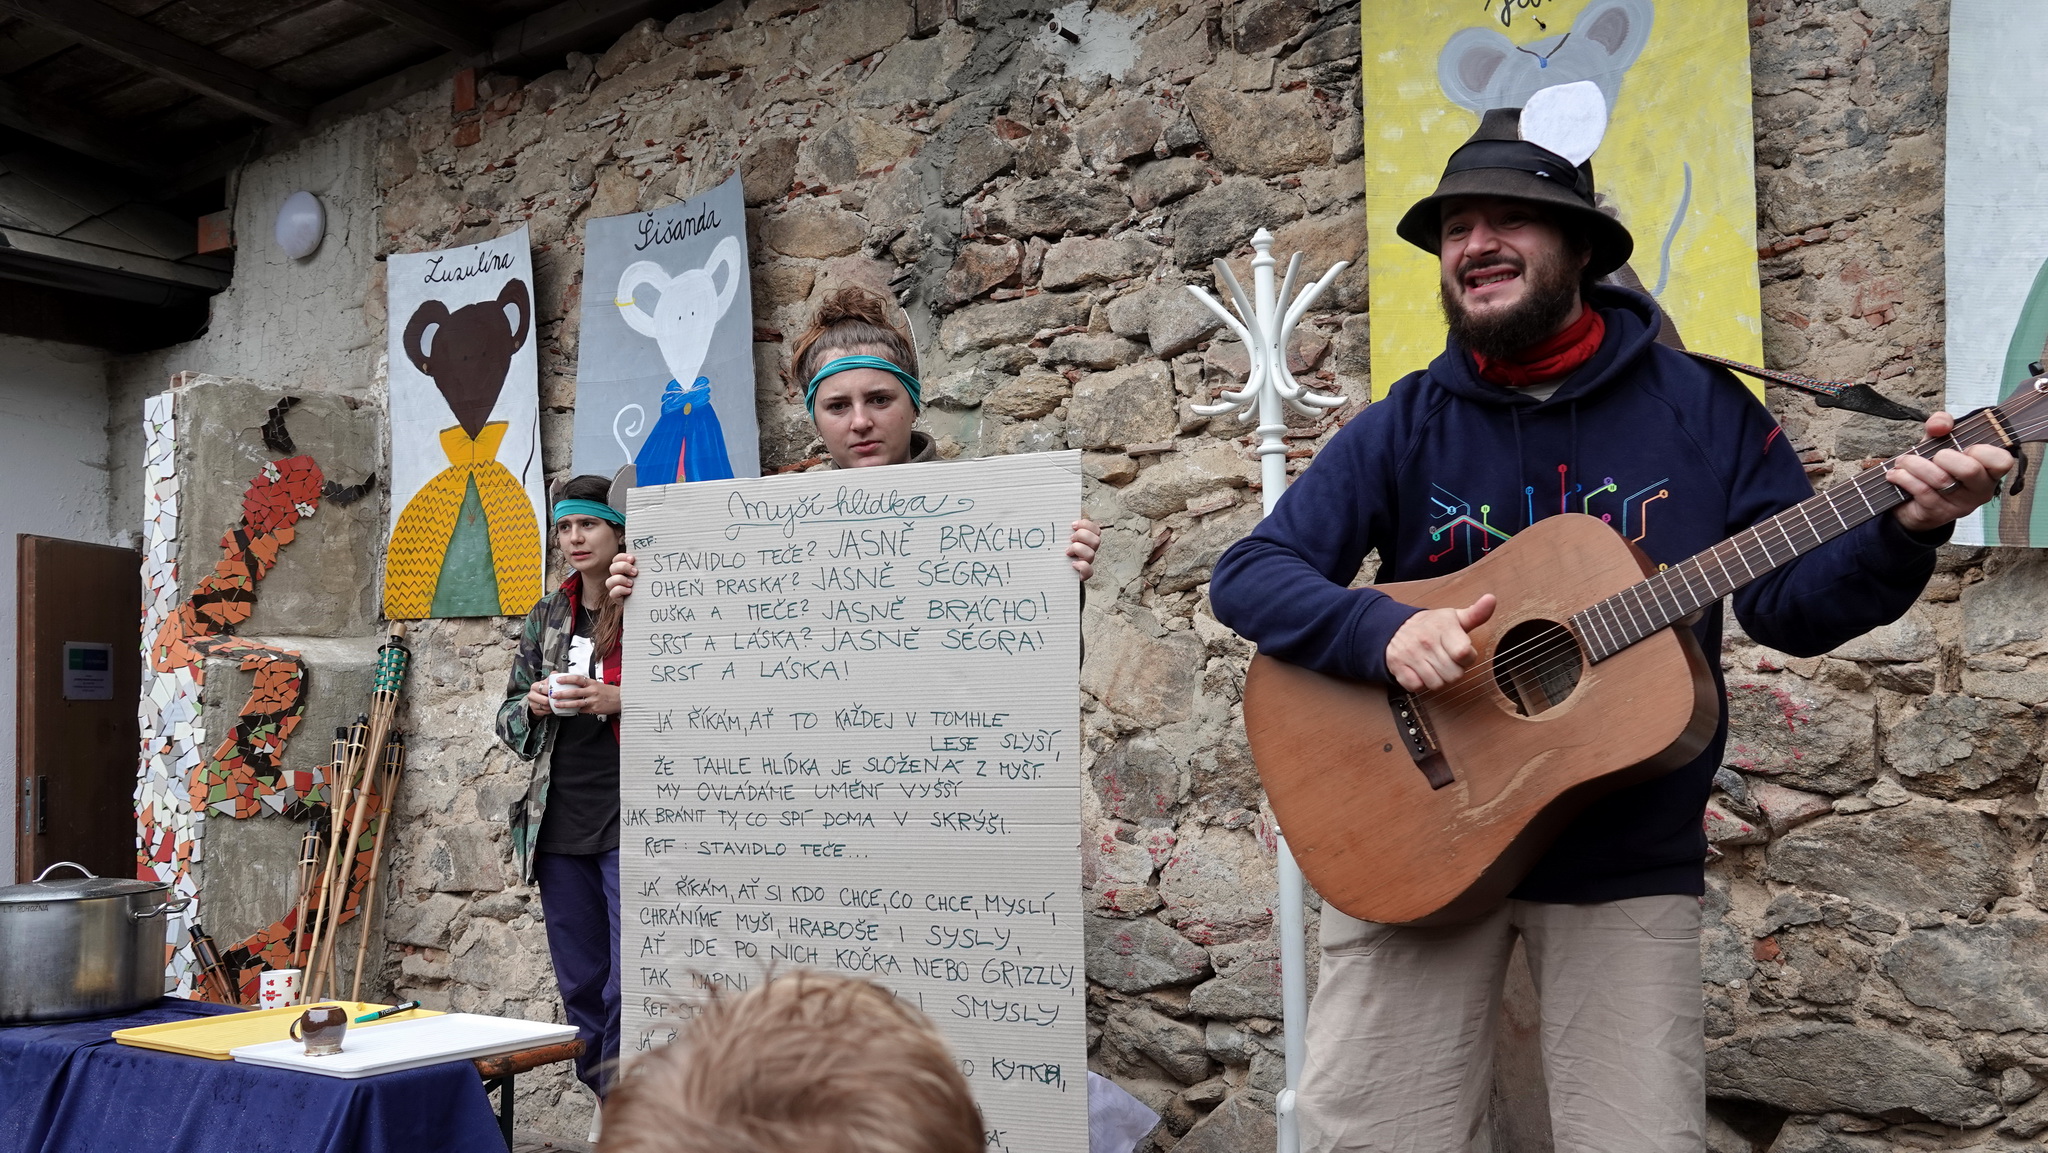 Zuzulína
Šišanda
Myší hlídka
REF:
STAVIDLO TEČE? JASNĚ BRÁCHO!
OHEŇ PRASKÁ? JASNĚ SÉGRA!
OUŠKA A MEČE? JASNĚ BRÁCHO!
SRST A LÁSKA? JASNĚ SÉGRA!
SRST A LÁSKA!
JÁ ŘÍKÁM, AŤ TO KAŽDEJ V TOMHLE
LESE SLYŠÍ,
ŽE TAHLE HLÍDKA JE SLOŽENÁ Z MYŠÍ.
MY OVLÁDÁME UMĚNÍ VYŠŠÍ
JAK BRÁNIT TY, CO SPÍ DOMA V SKRÝŠI.
REF: STAVIDLO TEČE...
JÁ ŘÍKÁM, AŤ SI KDO CHCE, CO CHCE, MYSLÍ,
CHRÁNÍME MYŠI, HRABOŠE I SYSLY,
AŤ JDE PO NICH KOČKA NEBO GRIZZLY,
TAK NAPNI I SMYSLY
REF:
JÁ
KYTKY,